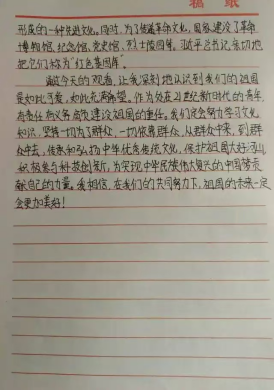 稿 纸
形成的一种先进文化。同时,为了传承革命文化,国家建设了革命
博物馆,纪念馆,党史馆,烈士陵园等。习近平总书记亲切地
把它们称为"红色基因库"。
今天的观看,让我深刻地认识到我们的祖国
是如此可爱,如此充满希望。作为处在21世纪新时代的青年,
有责任有义务肩负建设祖国的重任。我们定会努力学习文化
知识,坚持一切为了群众,一切依靠群众,从群众中来,到群
众中去,传承和弘扬中华优秀传统文化,保护祖国大好河山
积极参与科技创新,为实现中华民族伟大复兴的中国梦贡
献自己的力量。我相信,在我们的共同努力下,祖国的未来一定
会更加美好!